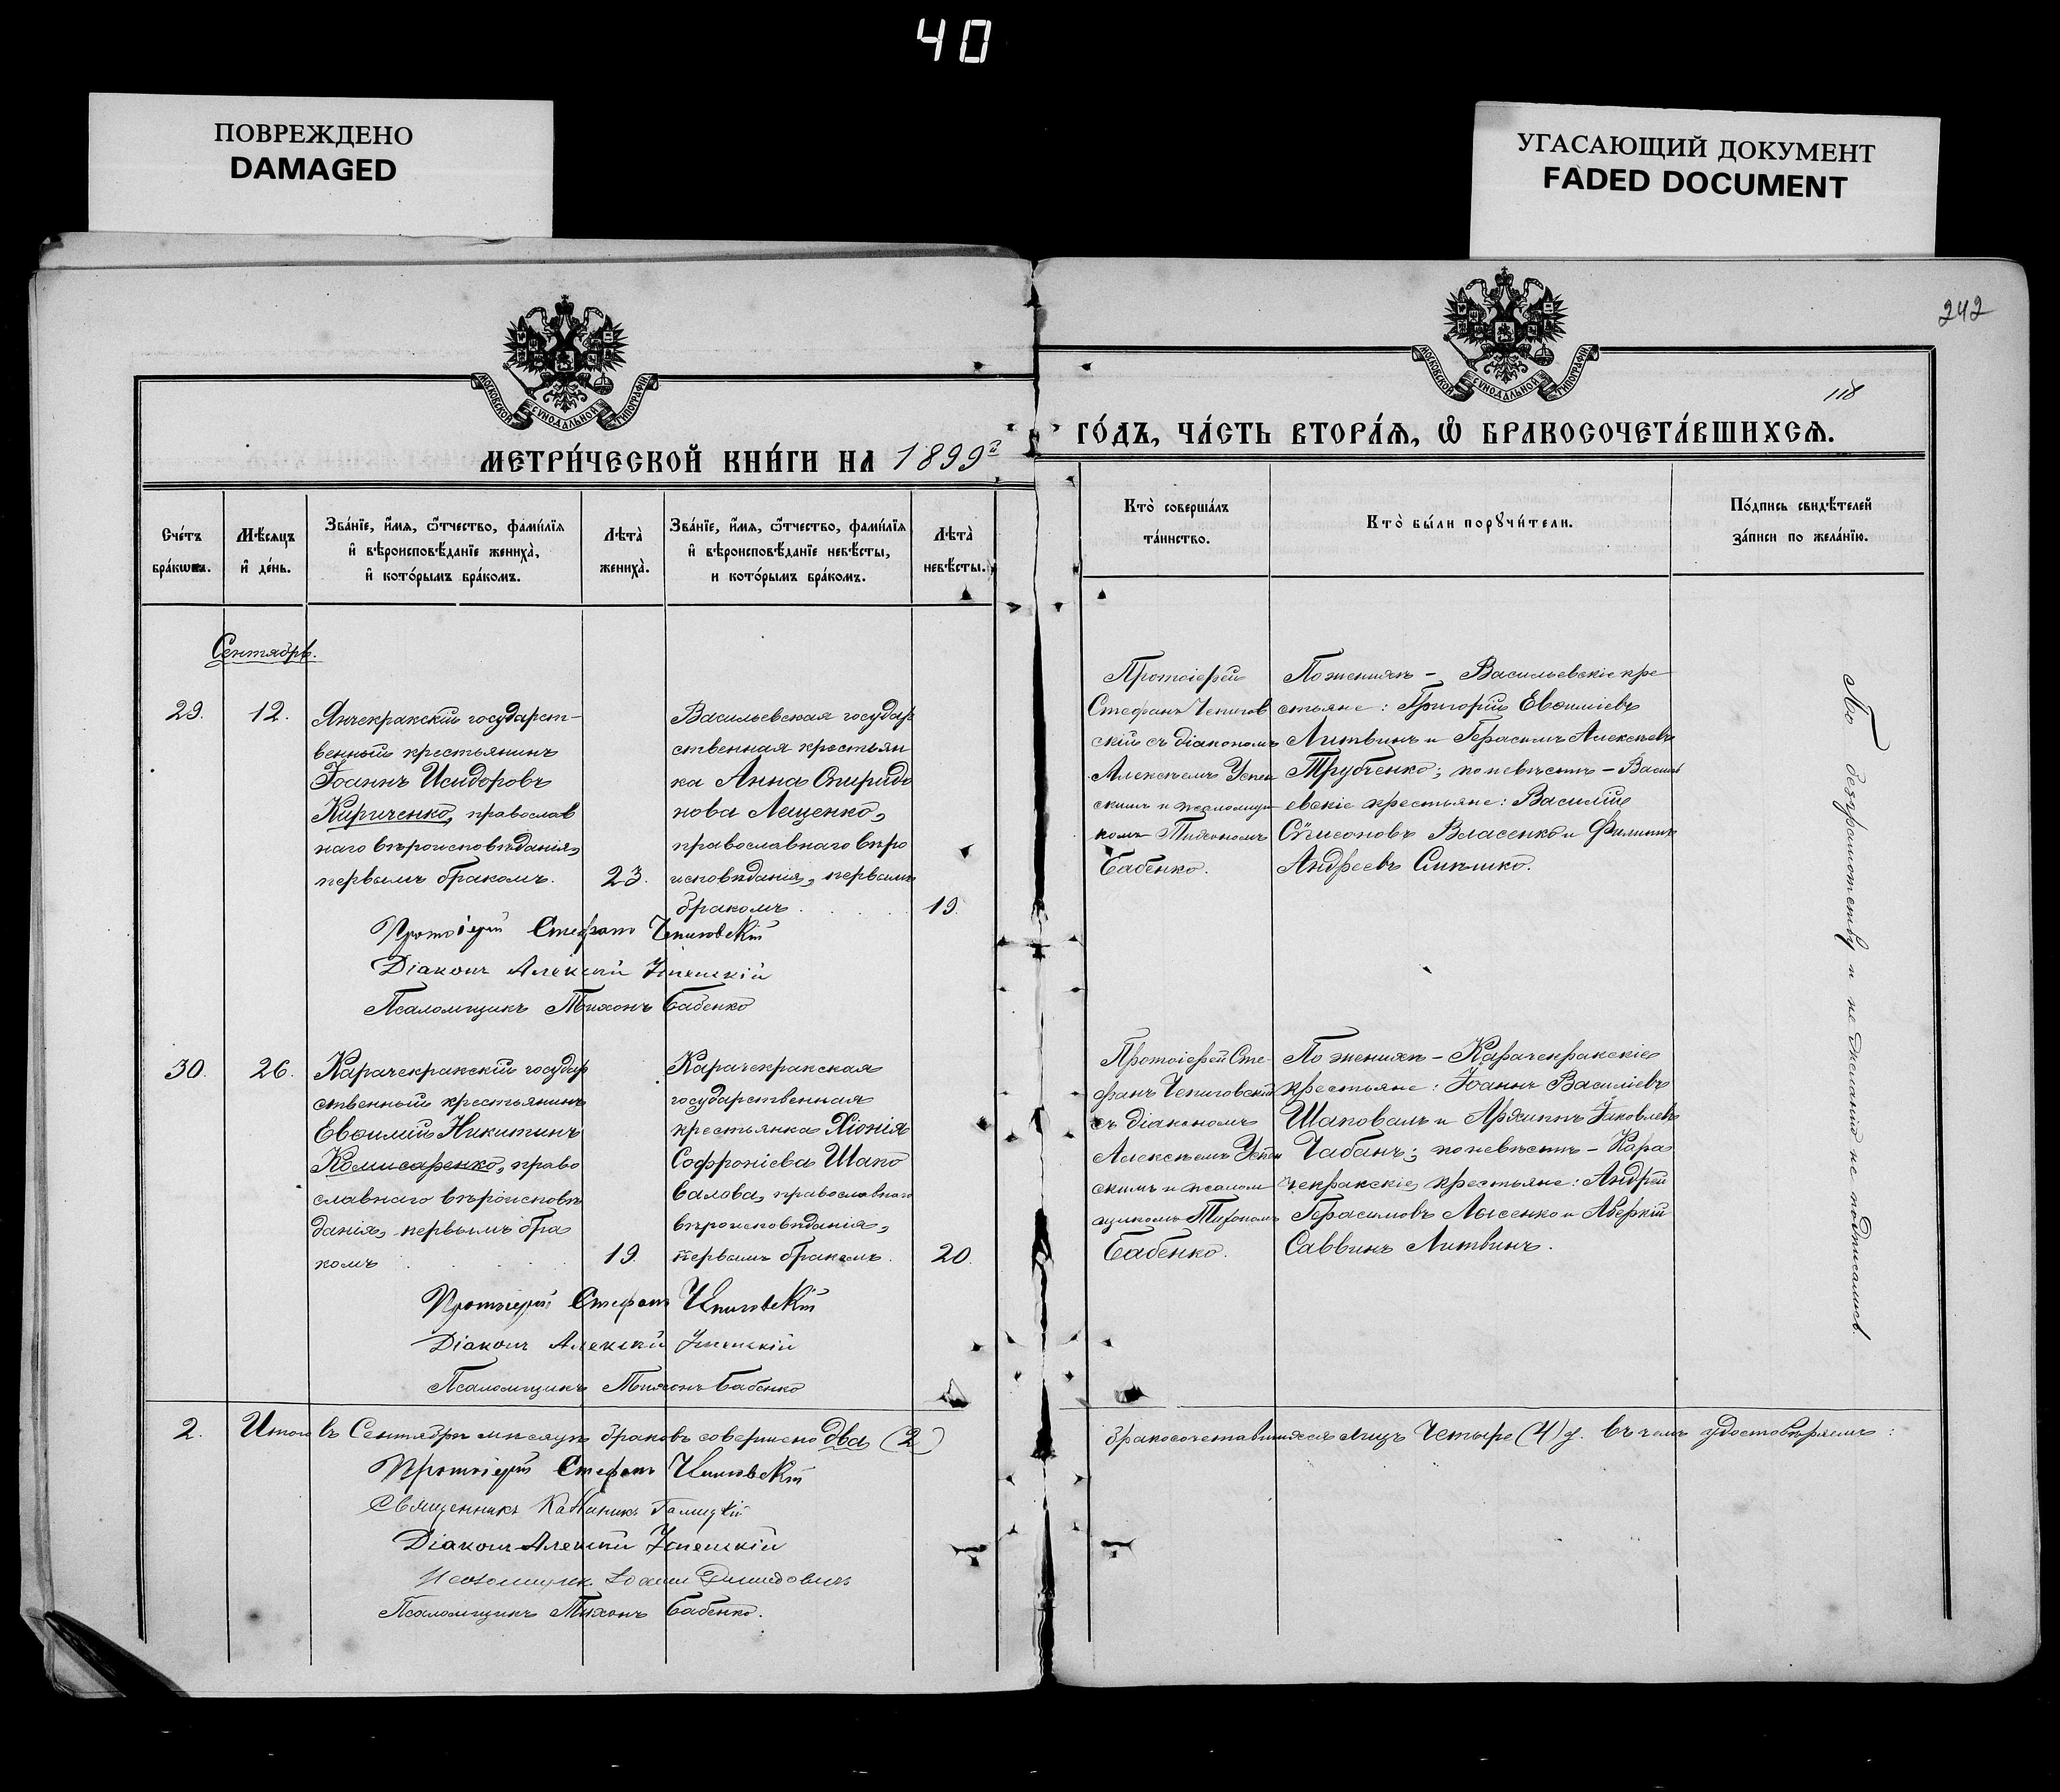 40
ПОВРЕЖДЕНО
DAMAGED
УГАСАЮЩИЙ ДОКУМЕНТ
FADED DOCUMENT
242
118
МОСКОВСКОЙ СѴНОДАЛЬНОЙ ТИПОГРАФІИ
МОСКОВСКОЙ СѴНОДАЛЬНОЙ ТИПОГРАФІИ
МЕТРИ́ЧЕСКОЙ КНИ́ГИ НА 1899 г
ГО́ДЪ, ЧА́СТЬ ВТОРА́Ѧ, Ѡ҆ БРАКОСОЧЕТА́ВШИХСѦ.
Сче́тъ
бра́кѡвъ.
Мѣ́сѧцъ
и҆ де́нь.
Зва́нїе, и҆́мѧ, ѻ҆́тчество, фами́лїѧ
и҆ вѣроисповѣ́данїе жениха̀,
и҆ кото́рымъ бра́комъ.
Лѣта̀
жениха̀.
Зва́нїе, и҆́мѧ, ѻ҆́тчество, фами́лїѧ
и҆ вѣроисповѣ́данїе невѣ́сты,
и кото́рымъ бра́комъ.
Лѣта̀
невѣ́сты.
Кто̀ соверша́лъ
та́инство.
Кто̀ бы́ли порꙋчи́тели.
По́дпись свидѣ́телей
за́писи по жела́нїю.
Сентябрь.
29.
12.
Янчекракскій государст-
венный крестьянинъ
Іоаннъ Исидоровъ
Кириченко, православ
наго вѣроисповѣданія,
первымъ бракомъ.
23.
Васильевская государ
ственная крестьян
ка Анна Спиридо
нова Лещенко,
православнаго вѣро
исповѣданія, первымъ
бракомъ.
19.
Протоіерей
Стефанъ Чепигов
скій съ діакономъ
Алексѣемъ Успен
скимъ и псаломщи
комъ Тихономъ
Бабенко.
По женихѣ – Васильевскіе кре
стьяне: Григорій Евѳиміевъ
Литвинъ и Герасимъ Алексѣевъ
Трубченко; по невѣстѣ – Василь
евскіе крестьяне: Василій
Сѵмеоновъ Власенко и Филиппъ
Андреевъ
Протоіерей Стефанъ Чепиговскій
Діаконъ Алексій Успенскій
Псаломщикъ Тихонъ Бабенко
30.
26.
Карачекракскій государ
ственный крестьянинъ
Евѳимій Никитинъ
Комисаренко, право
славнаго вѣроисповѣ
данія, первымъ бра
комъ
19.
Карачекракская
государственная
крестьянка Хіонія
Софроніева Шапо
валова, православнаго
вѣроисповѣданія,
первымъ бракомъ.
20.
Протоіерей Сте-
фанъ Чепиговскій
съ діакономъ
Алексѣемъ Успен
скимъ и псалом
щикомъ Тихономъ
Бабенко.
По женихѣ – Карачекракскіе
крестьяне: Іоаннъ Василіевъ
Шаповалъ и Архиппъ Іаковлевъ
Чабанъ; по невѣстѣ – Кара
чекракскіе крестьяне: Андрей
Герасимовъ Лысенко и Аверкій
Саввинъ Литвинъ.
По безграмотству и не желанію не подписались.
Протоіерей Стефанъ Чепиговскій
Діаконъ Алексій Успенскій
Псаломщикъ Тихонъ Бабенко
2.
Итого въ Сентябрѣ мѣсяцѣ браковъ совершено два (2)
бракосочетавшихся лицъ Четыре (4) въ чемъ удостовѣряемъ:
Протоіерей Стефанъ Чепиговскій
Священникъ Галицкій
Діаконъ Алексій Успенскій
Псаломщикъ Іоаннъ
Псаломщикъ Тихонъ Бабенко.